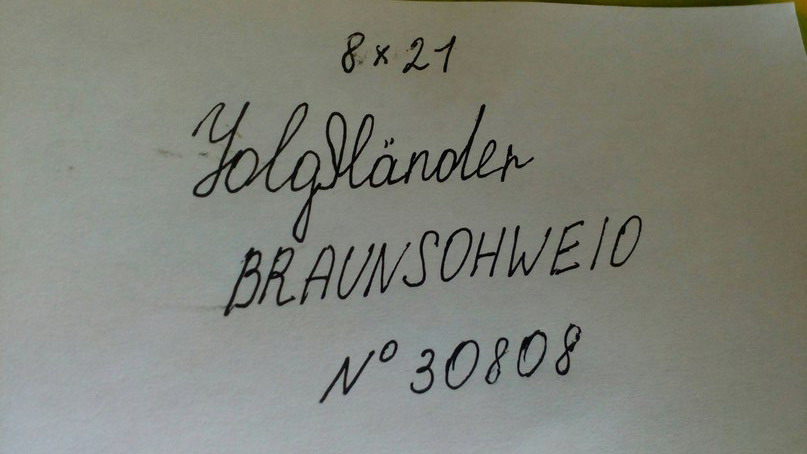 8 x 21
Yolgtländer
BRAUNSOHWEIO
N° 30808